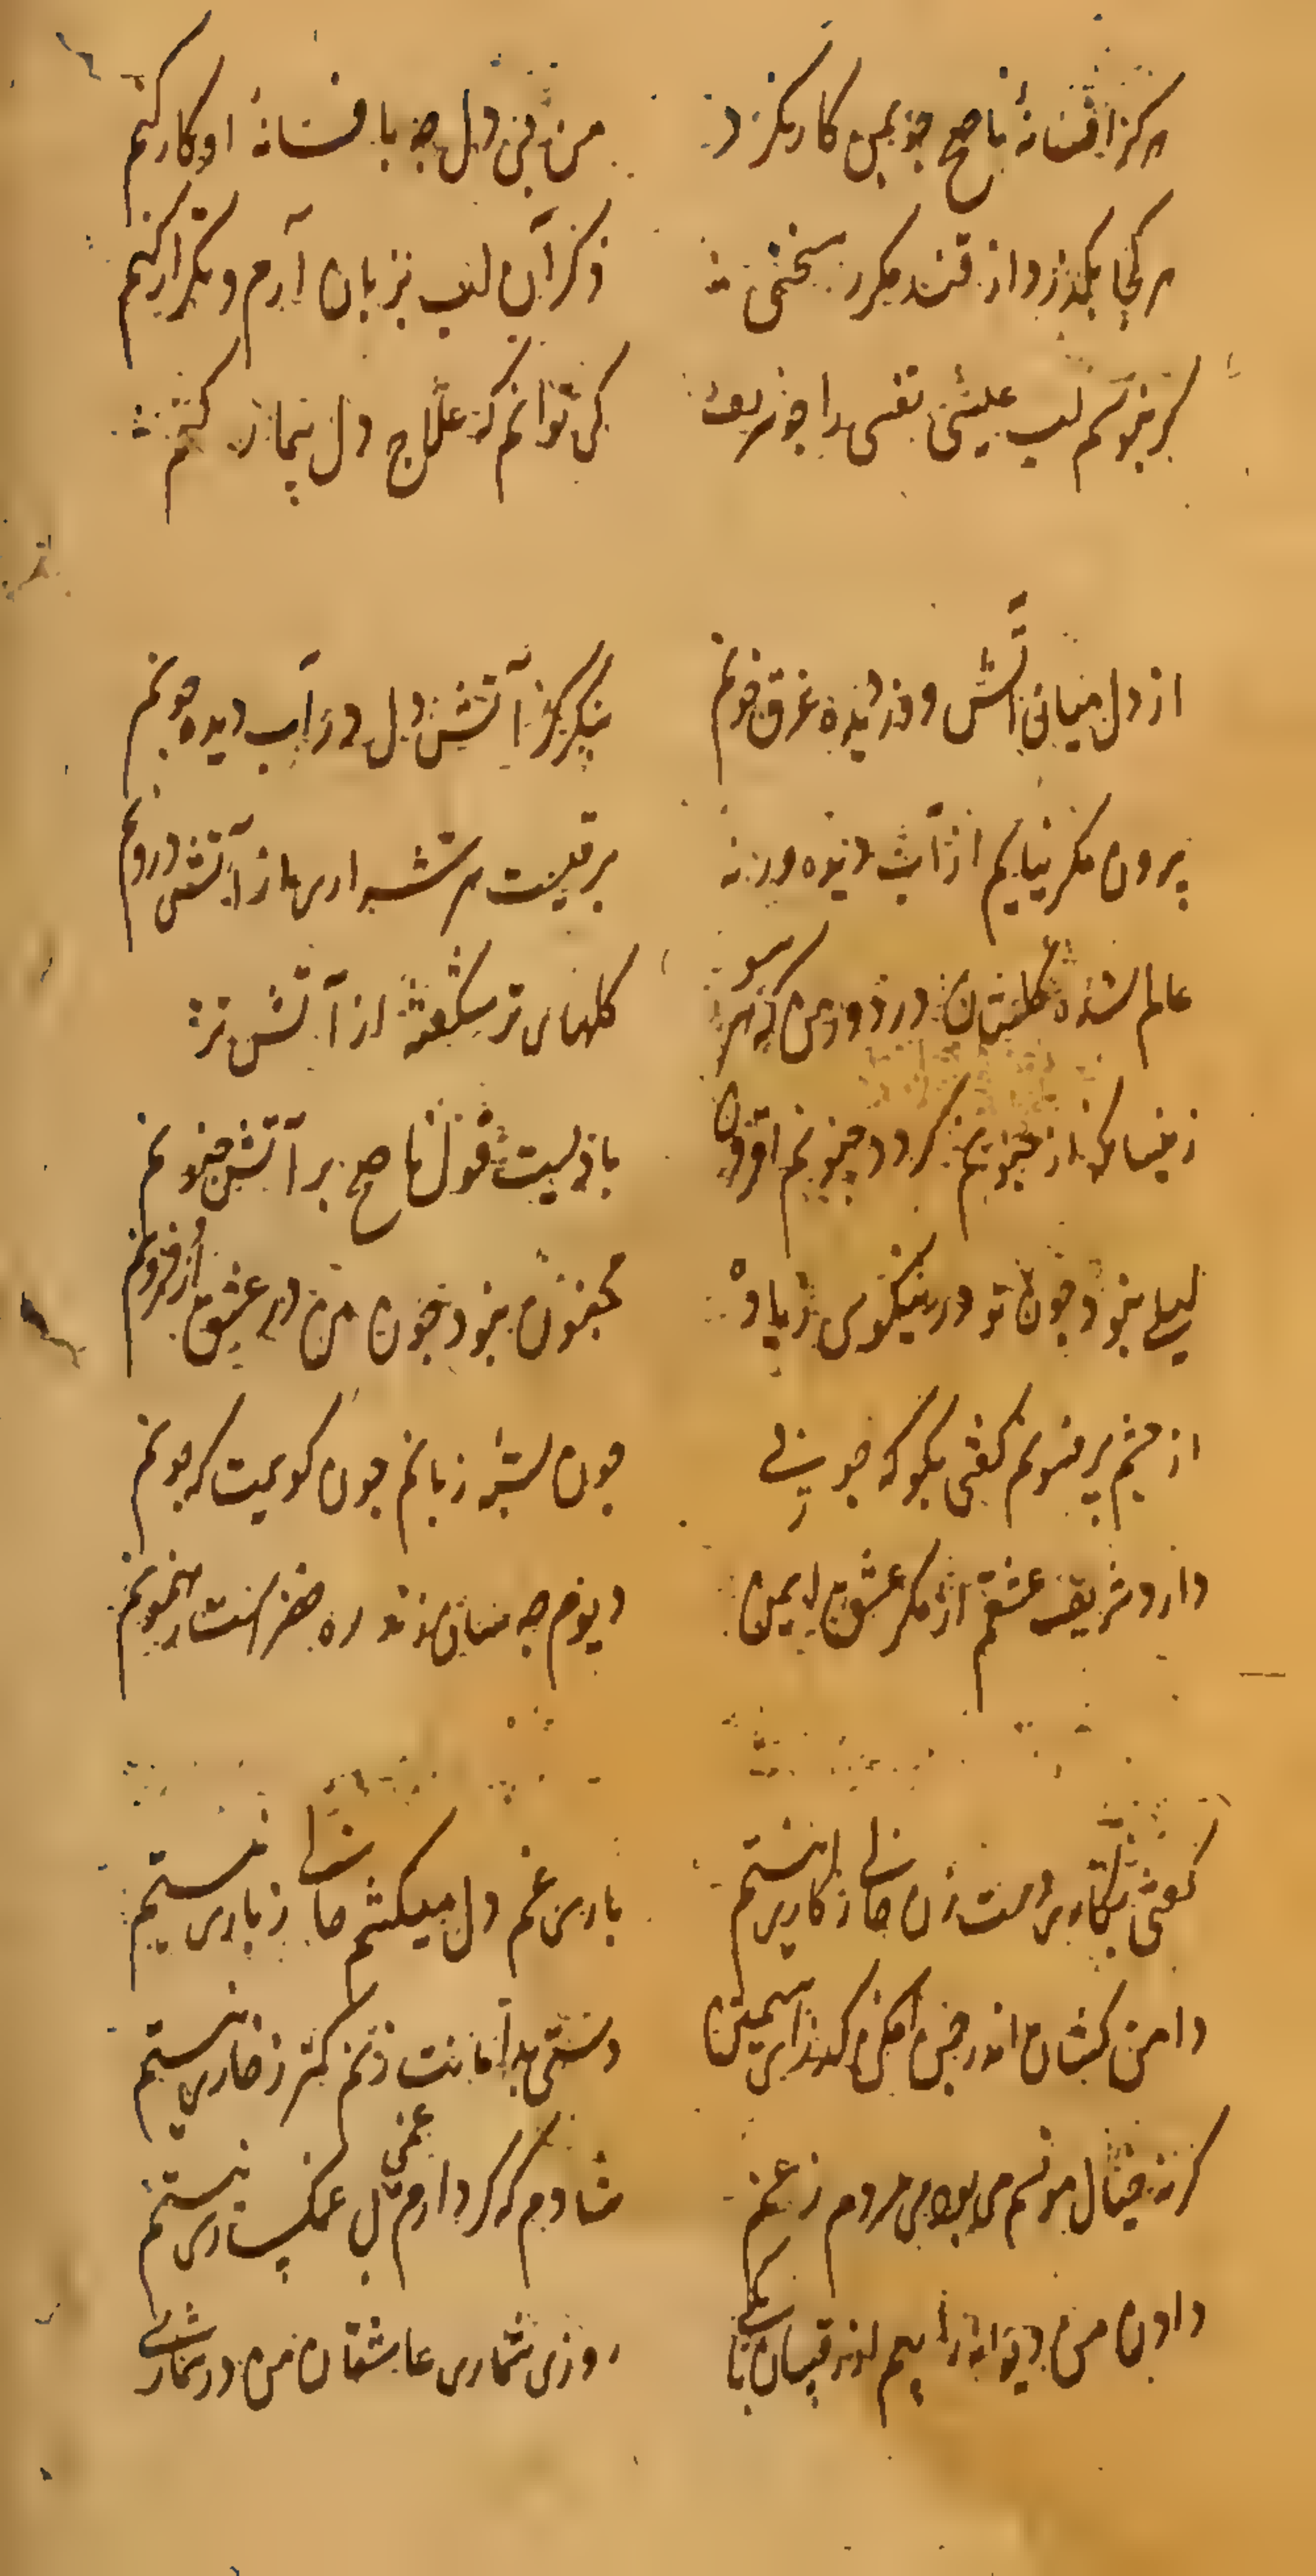 هرکز افسانهٔ ناصح چو بمن کار نکرد
من بی دل چه با فسانهٔ او کار کنم
هر کجا بگذرد از قند مکرر سخنی
ذکر آن لب بزبان آرم و تکرار کنم
گر نبوسم لب عیسی نفسی را چو شریف
کی توانم که علاج دل بیمار کنم
از دل میان آتش وز دیده غرق خونم
بنگر کز آتش دل در آب دیده چونم
بیرون مگر نیایم از آب دیده ورنه
برقیست هر شراری از آتش درونم
عالم شده گلستان در دور من که هر سو
گلهای تر شکفته از آتش
زینسان که از جنونم گردد جنونم افزون
بادیست قول ناصح بر آتش جنونم
لیلی نبود چون تو در نیکوی زیاده
مجنون نبود چون من در عشق از فزونم
از چشم پر فسونم گفتی بگو که چونی
چون بسته زبانم چون گویمت که چونم
دارد شریف عشقم از مکر عشق ایمن
دیوم چه سان زند ره خضر است رهنمونم
گفتی بکاری دست زن حالی ز کاری نیستم
باری غم دل میکشم خالی ز باری نیستم
دامن کشان اندر چمن مگذر ای سیمتن
دستی بدامانت زنم کمتر ز خاری نیستم
گر نه خیال مونسم می بود می مردم ز غم
شادم که گر دارم غمی بی غمگساری نیستم
دادن من دیوانه را بیم از رقیبان تا بکی
روزی شماری عاشقان من در شماری